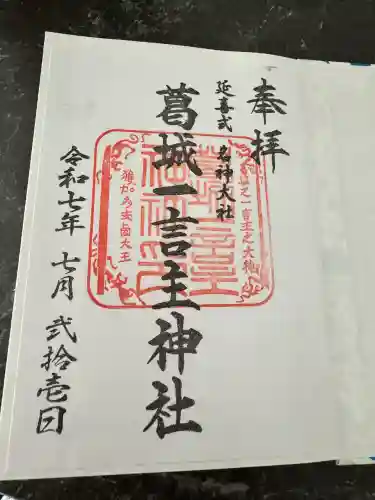 奉拝
延喜式 名神大社
葛城一言主神社
令和七年 七月 弐拾壱日